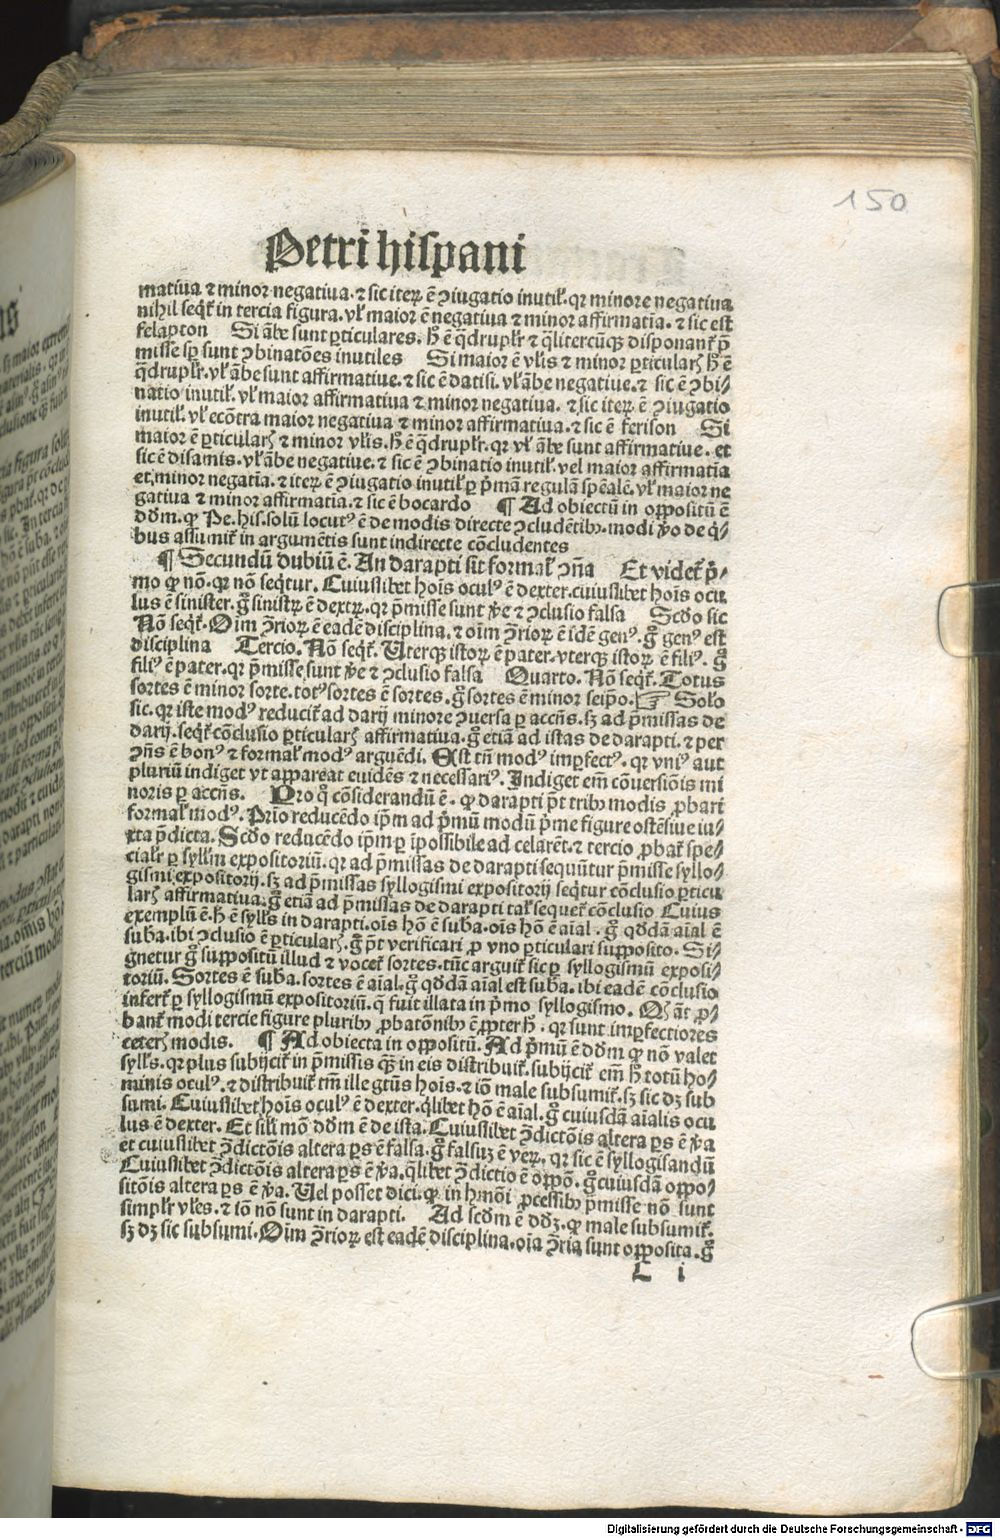 150
Petri hispani
matiua ⁊ minor negatiua. ⁊ sic iteꝝ ē ꝯiugatio inutil'. qꝛ minore negatiua
nihil seqt̄ in tercia figura. vl' maior ē negatiua ⁊ minor affirmatīa. ⁊ sic est
felapton Si ābe sunt ꝑticulares. h̄ ē q̄drupl'r ⁊ q̄litercūqꝫ disponant̄ p̄
misse sꝑ sunt ꝯbinatōes inutiles Si maior ē vl'is ⁊ minor ꝑticularꝭ h̄ ē
q̄drupl'r. vl' ābe sunt affirmatiue. ⁊ sic ē datisi. vl' ābe negatiue. ⁊ sic ē ꝯbi/
natio inutil'. vl' maior affirmatiua ⁊ minor negatiua. ⁊ sic iteꝝ ē ꝯiugatio
inutil'. vl' ecōtra maior negatiua ⁊ minor affirmatiua. ⁊ sic ē ferison Si
maior ē ꝑticularꝭ ⁊ minor vl'is. h̄ ē q̄drupl'r. qꝛ vl' ābe sunt affirmatiue. et
sic ē disamis. vl' ābe negatiue. ⁊ sic ē ꝯbinatio inutil'. vel maior affirmatīa
et minor negatīa. ⁊ iteꝝ ē ꝯiugatio inutil' ꝑ p̄mā regulā spēalē. vl' maior ne
gatiua ⁊ minor affirmatīa. ⁊ sic ē bocardo ¶ Ad obiectū in oppositū ē
dd̄m. ꝙ Pe. his. solū locutꝰ ē de modis directe ꝯcludētibꝫ. modi v̄o de q̄/
bus assumit̄ in argumētis sunt indirecte cōcludentes
¶ Secundū dubiū ē. An darapti sit formal' ꝯn̄a Et videt̄ p̄/
mo ꝙ nō. qꝛ nō seqt̄ur. Cuiuslibet hoīs oculꝰ ē dexter. cuiuslibet hoīs ocu
lus ē sinister. g̊ sinistꝝ ē dextꝝ. qꝛ p̄misse sunt v̄e ⁊ ꝯclusio falsa Scd̄o sic
Nō seqt̄. Oīm ꝯ̄rioꝝ ē eadē disciplina. ⁊ oīm ꝯ̄rioꝝ ē idē genꝰ. g̊ genꝰ est
disciplina Tercio. Nō seqt̄. Uterqꝫ istoꝝ ē pater. vterqꝫ istoꝝ ē filiꝰ. g̊
filiꝰ ē pater. qꝛ p̄misse sunt v̄e ⁊ ꝯclusio falsa Quarto. Nō seqt̄. Totus
sortes ē minor sorte. totꝰ sortes ē sortes. g̊ sortes ē minor seip̄o. ☞ Solo
sic. qꝛ iste modꝰ reducit̄ ad darij minore ꝯuersa ꝑ accn̄s. sꝫ ad p̄missas de
darij. seqt̄ cōclusio ꝑticularꝭ affirmatiua. g̊ etiā ad istas de darapti. ⁊ per
ꝯn̄s ē bonꝰ ⁊ formal' modꝰ arguēdi. Est tn̄ modꝰ imꝑfectꝰ. qꝛ vniꝰ aut
pluriū indiget vt appareat euidēs ⁊ necessariꝰ. Indiget em̄ cōuersiōis mi
noris ꝑ accn̄s. Pro q̊ cōsiderandū ē. ꝙ darapti pt̄ tribꝫ modis ꝓbari
formal' modꝰ. Prīo reducēdo ip̄m ad p̄mū modū p̄me figure ostēsiue iu/
xta p̄dicta. Scd̄o reducēdo ip̄m ꝑ īpossibile ad celarēt. ⁊ tercio ꝓbat̄ spe/
cial'r ꝑ syll'm expositoriū. qꝛ ad p̄missas de darapti sequūtur p̄misse syllo/
gismi expositorij. sꝫ ad p̄missas syllogismi expositorij seqt̄ur cōclusio ꝑticu
larꝭ affirmatiua. g̊ etiā ad p̄missas de darapti tal' sequet̄ cōclusio Cuius
exemplū ē. h̄ ē syll's in darapti. oīs hō ē suba. oīs hō ē aīal. g̊ qd̄dā aīal ē
suba. ibi ꝯclusio ē ꝑticularꝭ. g̊ pt̄ verificari ꝓ vno ꝑticulari supposito. Si/
gnetur g̊ suppositū illud ⁊ vocet̄ sortes. tūc arguit̄ sic ꝑ syllogismū exposi/
toriū. Sortes ē suba. sortes ē aīal. g̊ qd̄dā aīal est suba. ibi eadē cōclusio
infert̄ ꝑ syllogismū expositoriū. q̄ fuit illata in p̄mo syllogismo. Qꝙ āt ꝓ/
bant̄ modi tercie figure pluribꝫ ꝓbatōnibꝫ ē ꝓpter h̄. qꝛ sunt imꝑfectiores
ceterꝭ modis. ¶ Ad obiecta in oppositū. Ad p̄mū ē dd̄m ꝙ nō valet
syll's. qꝛ plus subijcit̄ in p̄missis qꝫ̄ in eis distribuit̄. subijcit̄ em̄ h̄ totū ho/
minis oculꝰ. ⁊ distribuit̄ tm̄ ille gt̄ūs hoīs. ⁊ iō male subsumit̄. sꝫ sic dꝫ sub
sumi. Cuiuslibet hoīs oculꝰ ē dexter. q̄libet hō ē aīal. g̊ cuiusdā aīalis ocu
lus ē dexter. Et sil'i mō dd̄m ē de ista. Cuiuslibet ꝯ̄dictōis altera ꝑs ē v̄a
et cuiuslibet ꝯ̄dictōis altera ꝑs ē falsa. g̊ falsuꝫ ē veꝝ. qꝛ sic ē syllogisandū
Cuiuslibet ꝯ̄dictōis altera ꝑs ē v̄a. q̄libet ꝯ̄dictio ē oppō. g̊ cuiusdā oppo/
sitōis altera ꝑs ē v̄a. Uel posset dici. ꝙ in hmōi ꝓcessibꝫ p̄misse nō sunt
simpl'r vl'es. ⁊ iō nō sunt in darapti. Ad scd̄m ē dd̄ꝫ. ꝙ male subsumit̄.
sꝫ dꝫ sic subsumi. Oīm ꝯ̄rioꝝ est eadē disciplina. oīa ꝯ̄ria sunt opposita. g̊
L i
Digitalisierung gefördert durch die Deutsche Forschungsgemeinschaft - DFG